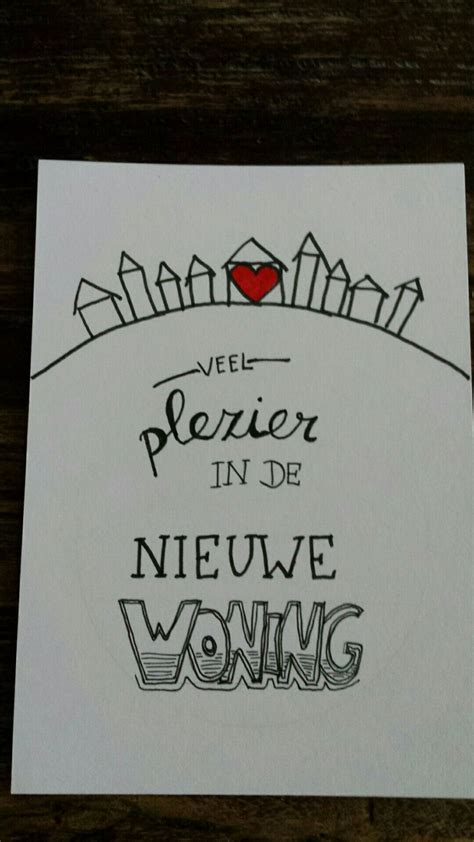 VEEL
plezier
IN DE
NIEUWE
WONING